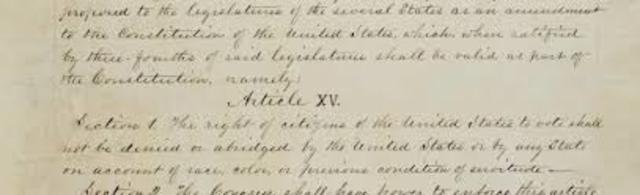 proposed to the legislatures of the several States as an amendment
to the Constitution of the United States, which, when ratified
by three-fourths of said legislatures shall be valid as part of
the Constitution, namely:
Article XV.
Section 1. The right of citizens of the United States to vote shall
not be denied or abridged by the United States or by any State
on account of race, color, or previous condition of servitude —
Section 2. The Congress shall have power to enforce this article